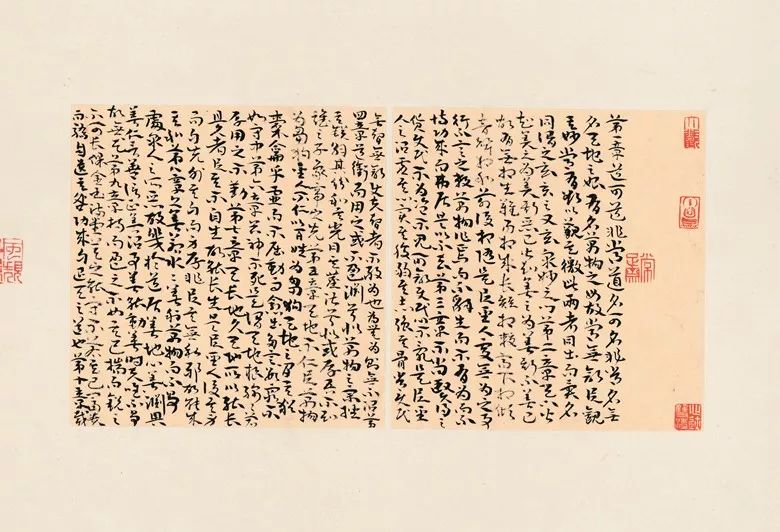 第一章道可道非常道名可名非常名無
名天地之始有名萬物之母故常無欲以觀
其妙常有欲以觀其徼此兩者同出而異名
同謂之玄玄之又玄眾妙之門第二章天下皆
知美之為美斯惡已皆知善之為善斯不善已
故有無相生難易相成長短相較高下相傾
音聲相和前後相隨是以聖人處無為之事
行不言之教萬物作焉而不辭生而不有為而不
恃功成而弗居是以不去第三章不尚賢使民
貨使民不為盜不見可欲使民心不亂是以聖
人之治虛其心實其腹弱其志強其骨常使民
無智無欲使夫智者不敢為也為無為則無不治第
四章道沖而用之或不盈淵兮似萬物之宗挫
其銳解其紛和其光同其塵湛兮似或存吾不知
誰之子象帝之先第五章天地不仁以萬物
為芻狗聖人不仁以百姓為芻狗天地之間其猶
橐籥乎虛而不屈動而愈出多言數窮不
如守中第六章谷神不死是謂天地根綿綿若
存用之不勤第七章天長地久天地所以能長
且久者以其不自生故能長生是以聖人後其身
而身先外其身而身存非以其無私邪故能成
其私第八章上善若水水善利萬物而不爭
處眾人之所惡故幾於道居善地心善淵與
善仁言善信正善治事善能動善時夫唯不爭
故無尤第九章持而盈之不如其已揣而銳之
不可長保金玉滿堂莫之能守富貴
而驕自遺其咎功成身退天之道也第十章載